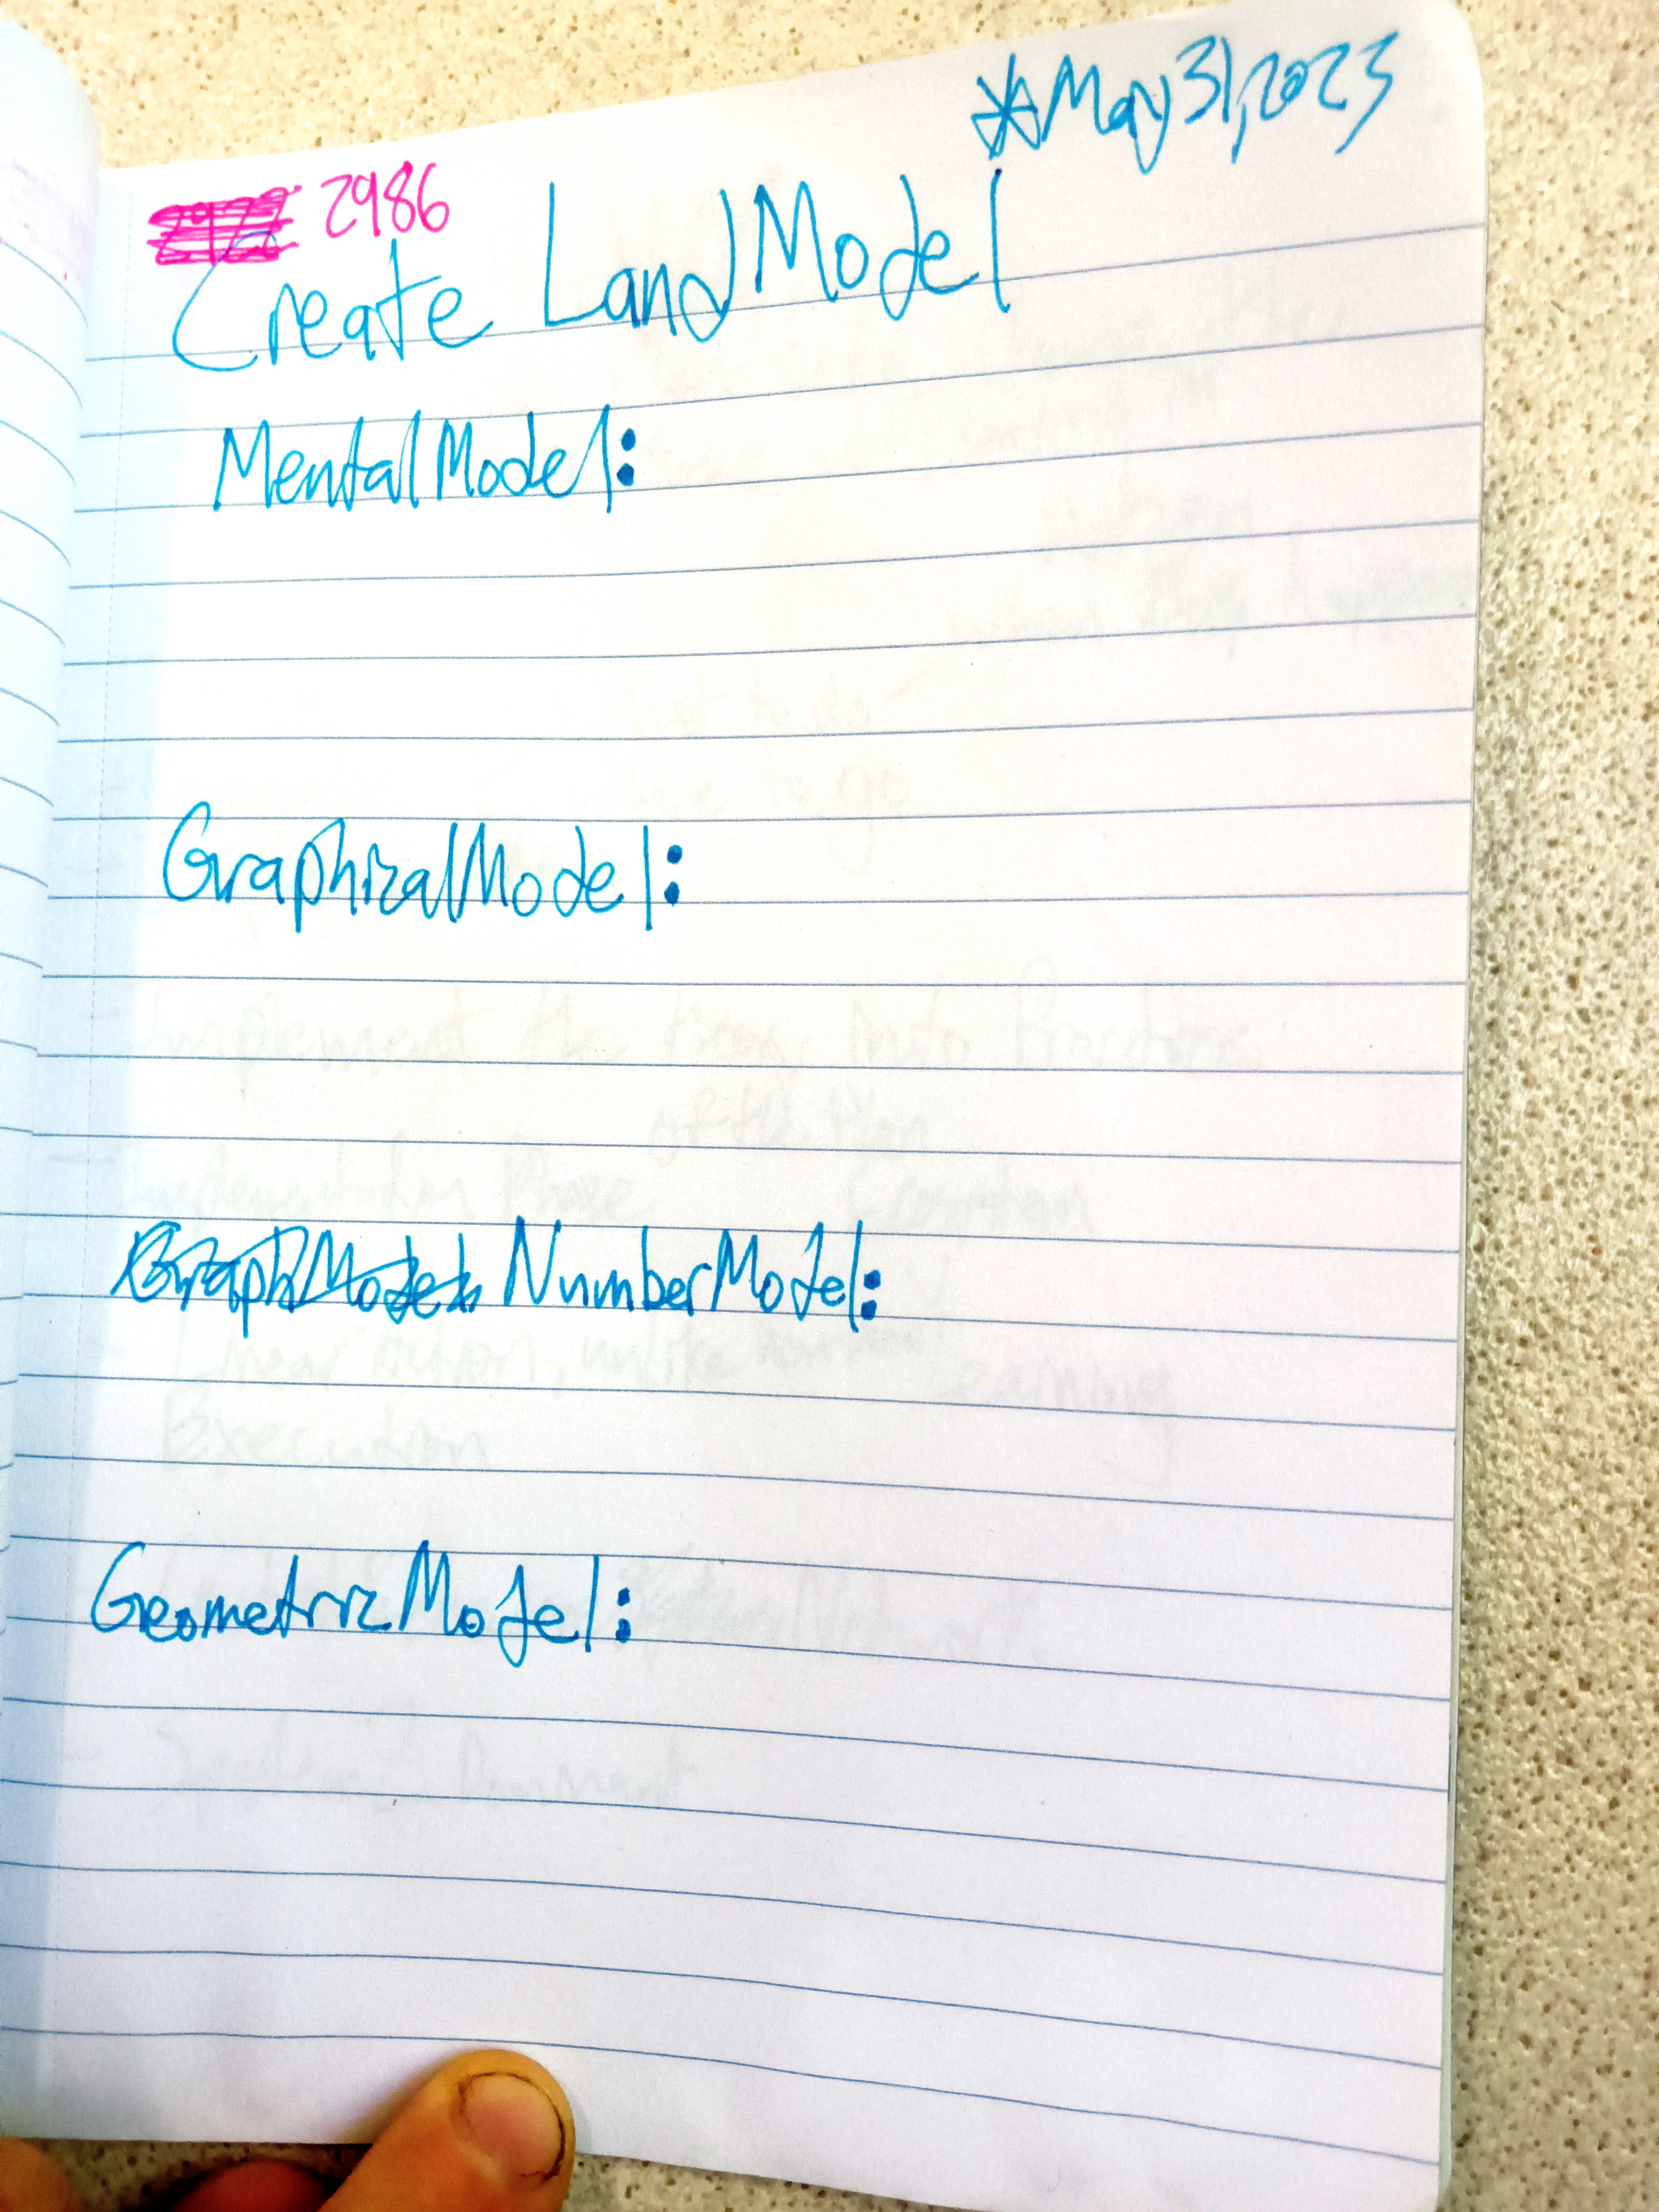 *May 31, 2023
2986
Create LandModel
MentalModel:
GraphicalModel:
GraphModel: NumberModel:
GeometricModel: